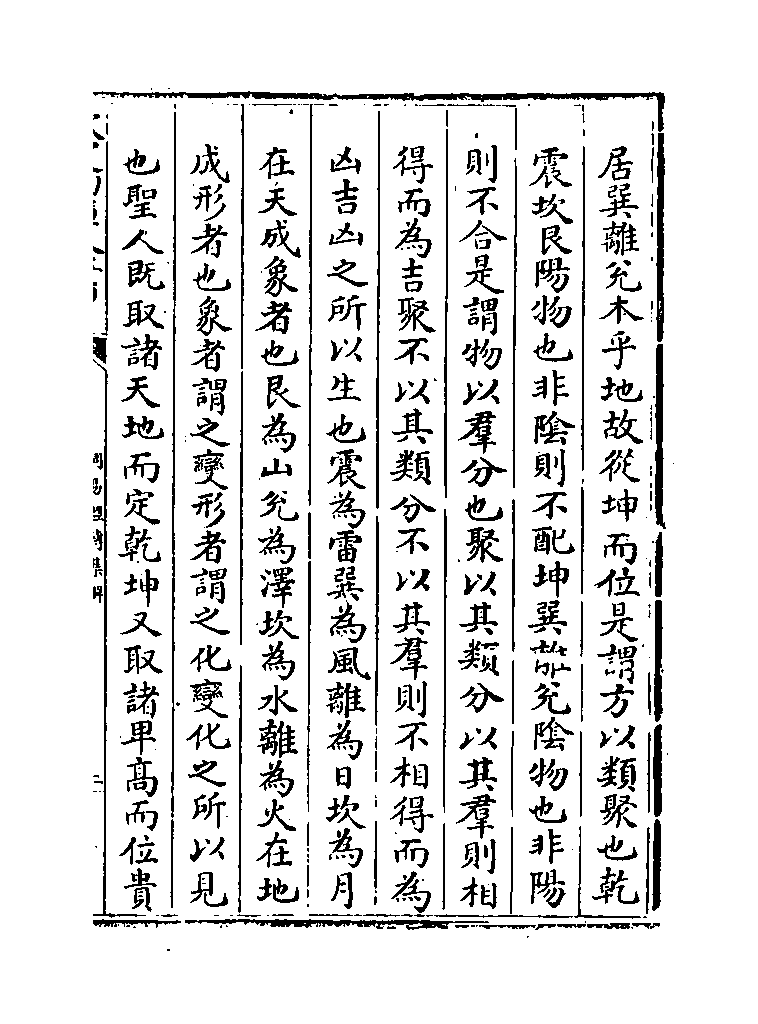 居巽離兊木乎地故從坤而位是謂方以類聚也乾
震坎艮陽物也非陰則不配坤巽離兊陰物也非陽
則不合是謂物以羣分也聚以其類分以其羣則相
得而為吉聚不以其類分不以其羣則不相得而為
凶吉凶之所以生也震為雷巽為風離為日坎為月
在天成象者也艮為山兊為澤坎為水離為火在地
成形者也象者謂之變形者謂之化變化之所以見
也聖人既取諸天地而定乾坤又取諸卑高而位貴